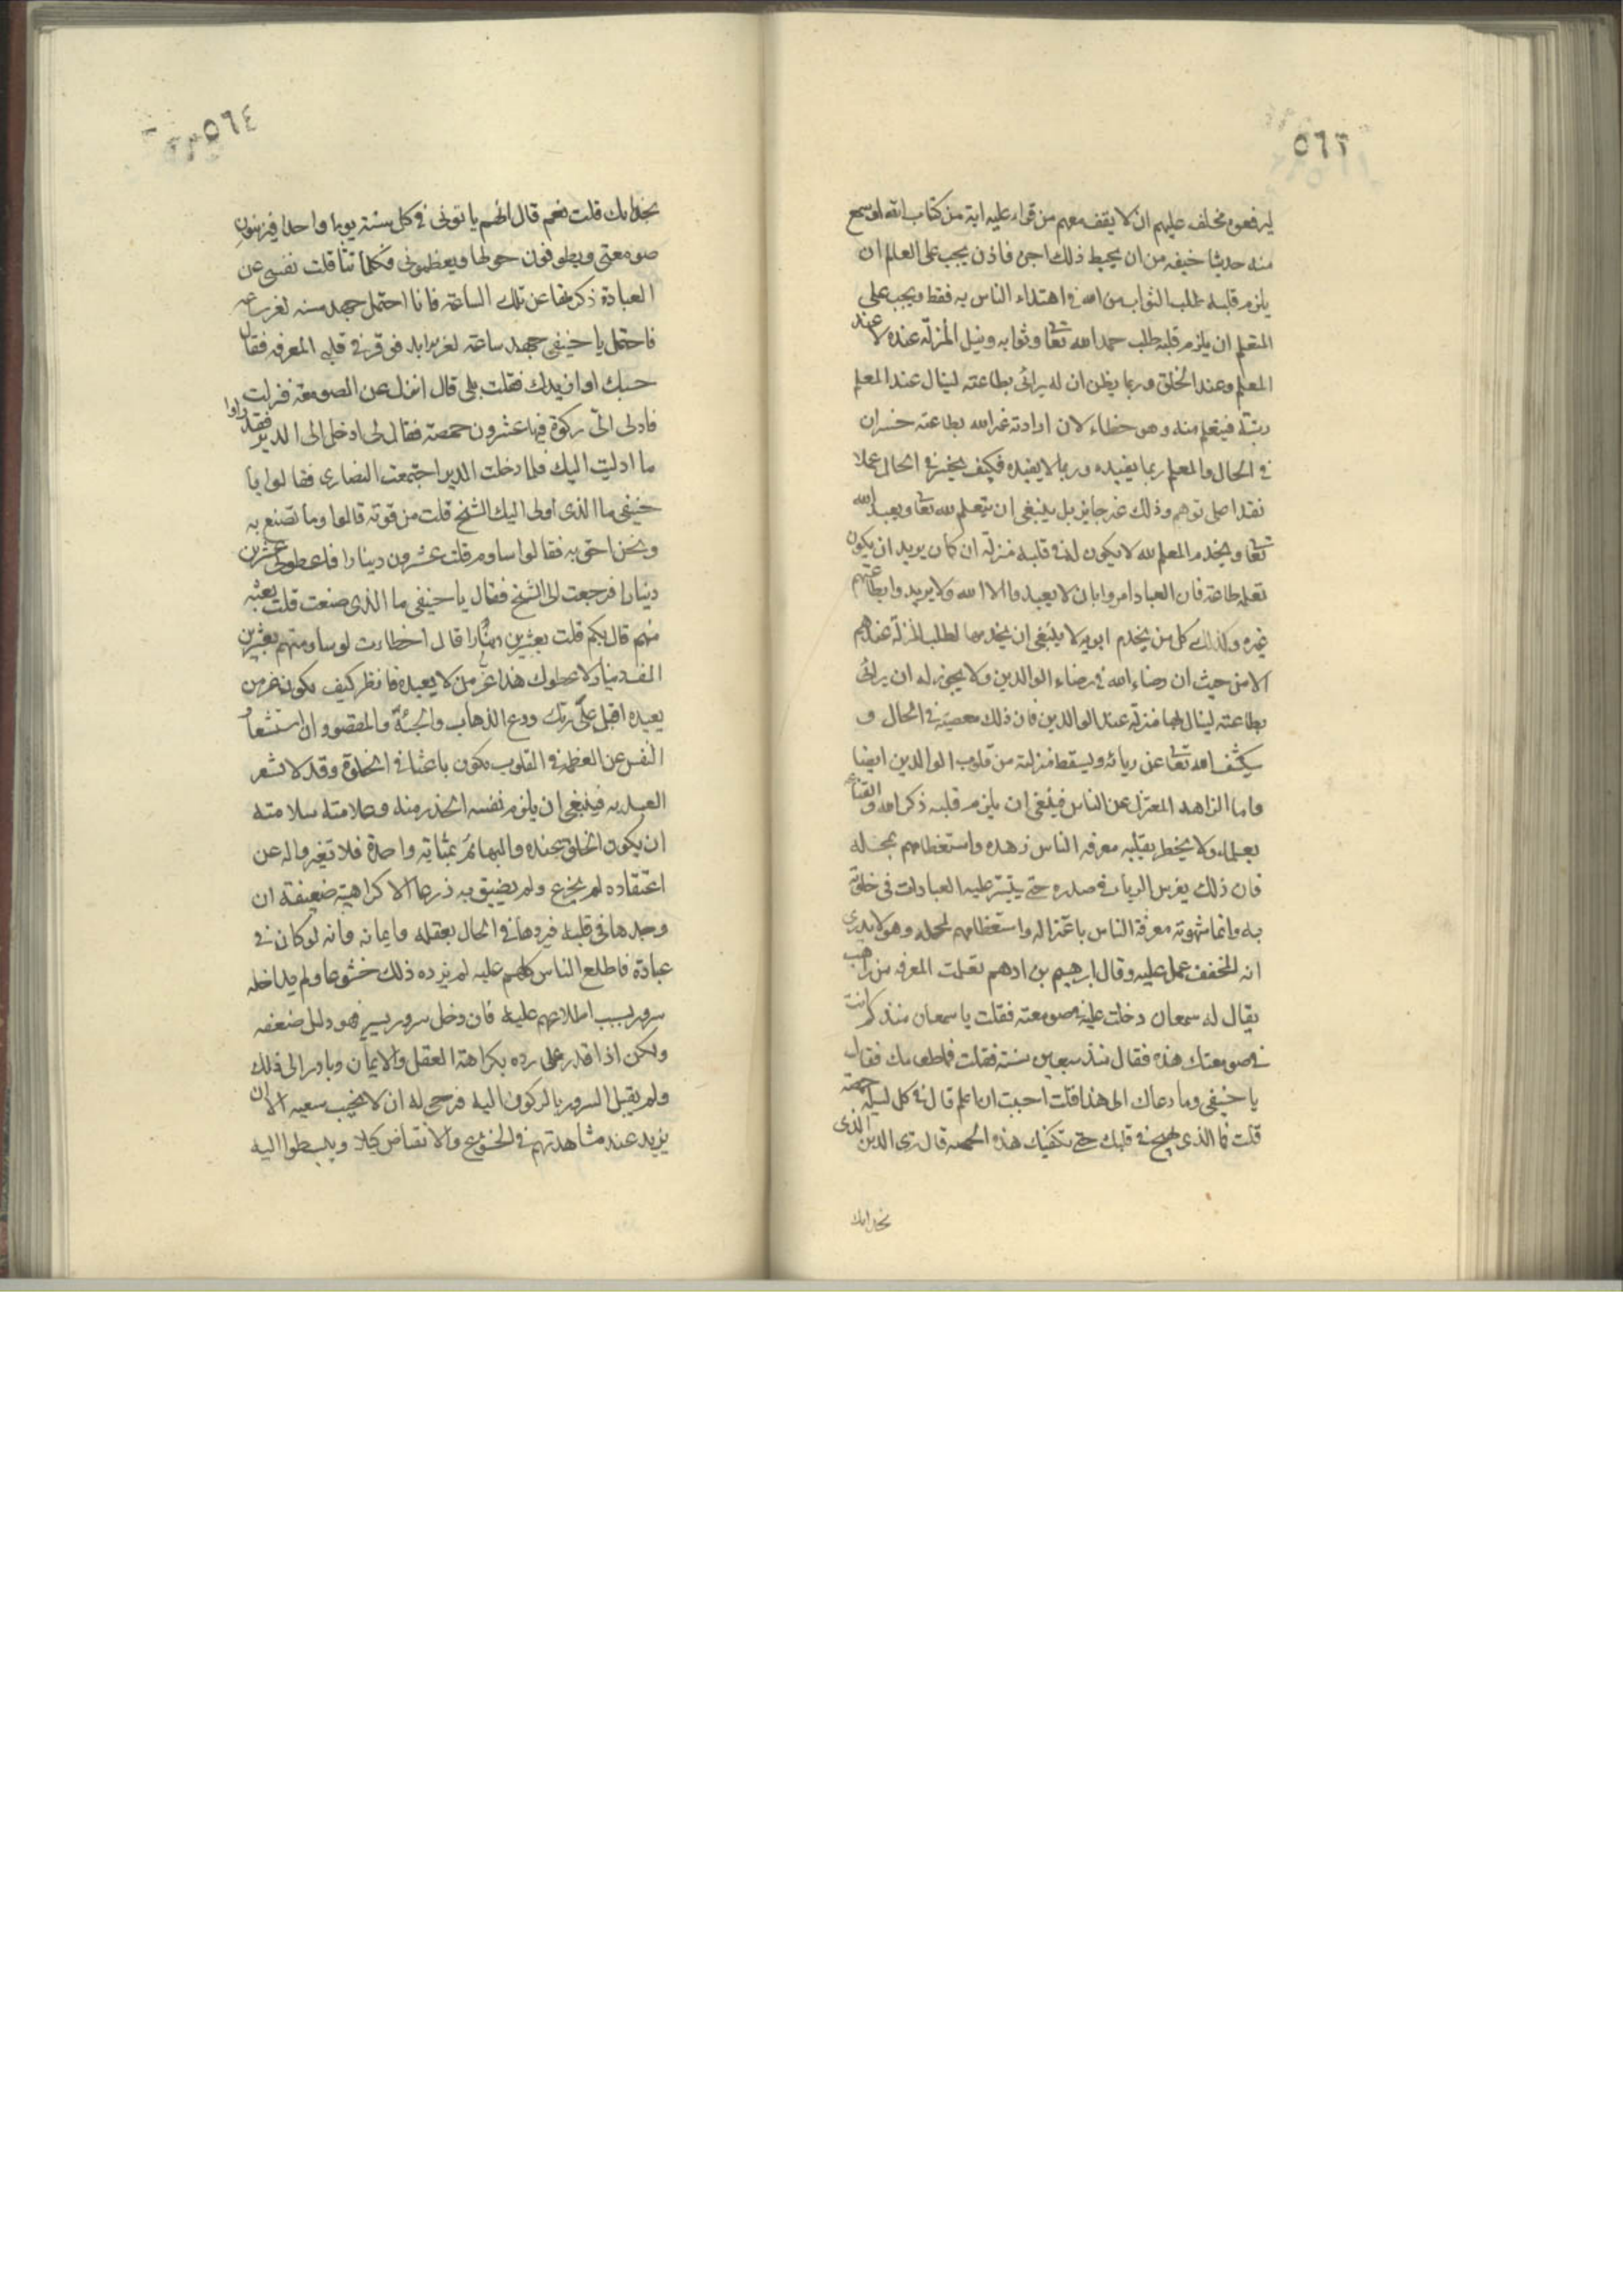 ٥٦٣
ليرفعوه فحلف عليهم ان لا يقف معهم من قراء عليه اية من كتاب الله او سمع
منه حديثا خيفه من ان يحبط ذلك اجره فاذن يجب على العالم ان
يلزم قلبه طلب الثواب من الله في اهتداء الناس به فقط ويجب على
المتعلم ان يلزم قلبه طلب حمد الله تعا وثوابه ونيل المنزلة عنده لا عند
المعلم وعند الخلق وربما يظن ان له يرائى بطاعته لينال عند المعلم
رتبة فيتعلم منه وهو خطاء لان ارادته غير الله بطاعته خسران
في الحال والعلم ربما يفيده وربما لا يفيده فكيف يخسر في الحال عملا
نقدا على توهم وذلك غير جايز بل ينبغى ان يتعلم لله تعا ويعبد الله
تعا ويخدم المعلم لله لا يكون له في قلبه منزلة ان كان يريد ان يكون
تعلمه طاعة فان العباد امروا بان لا يعبدوا الا الله ولا يريدوا بطاعتهم
غيره وكذلك كل من يخدم ابويه لا ينبغى ان يخدمهما لطلب المنزلة عندهم
الا من حيث ان رضاء الله في رضاء الوالدين ولا يجوز له ان يرائى
بطاعته لينال بها منزلة عند الوالدين فان ذلك معصية في الحال و
سيكشف الله تعا عن ريائه ويسقط منزلته من قلوب الوالدين ايضا
واما الزاهد المعتزل عن الناس فينبغى ان يلزم قلبه ذكر الله والقناعه
بعلمه ولا يخطر بقلبه معرفه الناس زهده واستعظامهم محله
فان ذلك يغرس الرياء في صدره حتى يتيسر عليه العبادات في خلوته
به وانما شهوته معرفة الناس باعتزاله واستعظامهم لمحله وهو لا يدرى
انه المخفف عمل عليه وقال ابرهيم بن ادهم تعلمت المعرفه من راهب
يقال له سمعان دخلت عليه صومعته فقلت يا سمعان منذ كم انت
في صومعتك هذه فقال منذ سبعين سنة فقلت فما طعامك فقال
يا حنيفى وما دعاك الى هذا قلت احببت ان اعلم قال في كل ليلة حمصه
قلت فما الذى يهيج في قلبك حتى تكفيك هذه الحمصه قال ترى الدير الذى
بحذائك
٥٦٤
بحذائك قلت نعم قال انهم ياتونى في كل سنة يوما واحدا فيزينون
صومعتى ويطوفون حولها ويعظمونى فكلما تثاقلت نفسى عن
العبادة ذكرتها عن تلك الساعة فانا احتمل جهد سنه لعز ساعه
فاحتمل يا حنيفى جهد ساعة لعز الابد فوقر في قلبى المعرفه فقال
حسبك او ازيدك فقلت بلى قال انزل عن الصومعة فنزلت
فادلى الىّ ركوة فيها عشرون حمصة فقال لى ادخل الى الدير فقد راوا
ما ادليت اليك فلما دخلت الدير اجتمعت النصارى فقالوا يا
حنيفى ما الذى اولى اليك الشيخ قلت من قوته قالوا وما تصنع به
ونحن احق به فقالوا ساوم قلت عشرون دينارا فاعطونى عشرين
دينارا فرجعت الى الشيخ فقال يا حنيفى ما الذى صنعت قلت بعته
منهم قال بكم قلت بعشرين دينارا قال اخطات لو ساومتهم بعشرين
الف دينار لاعطوك هذا عز من لا يعبده فانظر كيف يكون عز من
يعبده اقبل على ربك ودع الذهاب والجيئة والمقصود ان استشعار
النفس عن العظمه في القلوب يكون باعثا في الخلوة وقد لا يشعر
العبد به فينبغى ان يلزم نفسه الحذر منه وعلامته سلامته
ان يكون الخلق عنده والبهائم بمثابة واحدة فلا تغيروا له عن
اعتقاده لم يجزع ولم يضيق به ذرعا الا كراهية ضعيفة ان
وجدها في قلبه فيردها في الحال بعقله وايمانه وانه لو كان في
عبادة فاطلع الناس كلهم عليه لم يزده ذلك خشوعا ولم يداخله
سرور بسبب اطلاعهم عليه فان دخل سرور يسير فهو دليل ضعفه
ولكن اذا قدر على رده بكراهة العقل والايمان وبادر الى ذلك
ولم يقبل السرور بالركون اليه فيرجى له ان لا يخيب سعيه الا ان
يزيد عند مشاهدتهم في الخشوع والانقباض كيلا ويبسطوا اليه